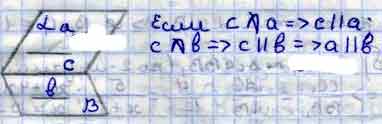 α a
c
b
β
Если c ∦ a => c || a.
c ∦ b => c || b => a || b.